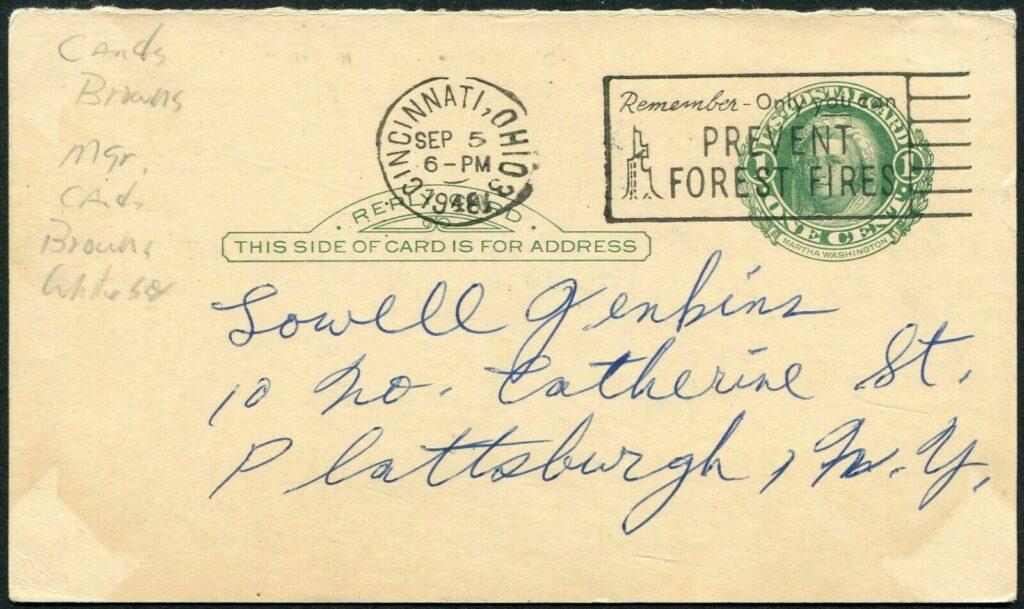 Cards
Browns
Mgr.
Cards
Browns
White sox
CINCINNATI, OHIO 3
SEP 5
6-PM
1948
Remember - Only you can
PREVENT
FOREST FIRES
U.S. POSTAL CARD
1 1
ONE CENT
MARTHA WASHINGTON
REPLY CARD
THIS SIDE OF CARD IS FOR ADDRESS
Lowell Jenkins
10 No. Catherine St.
Plattsburgh, N.Y.